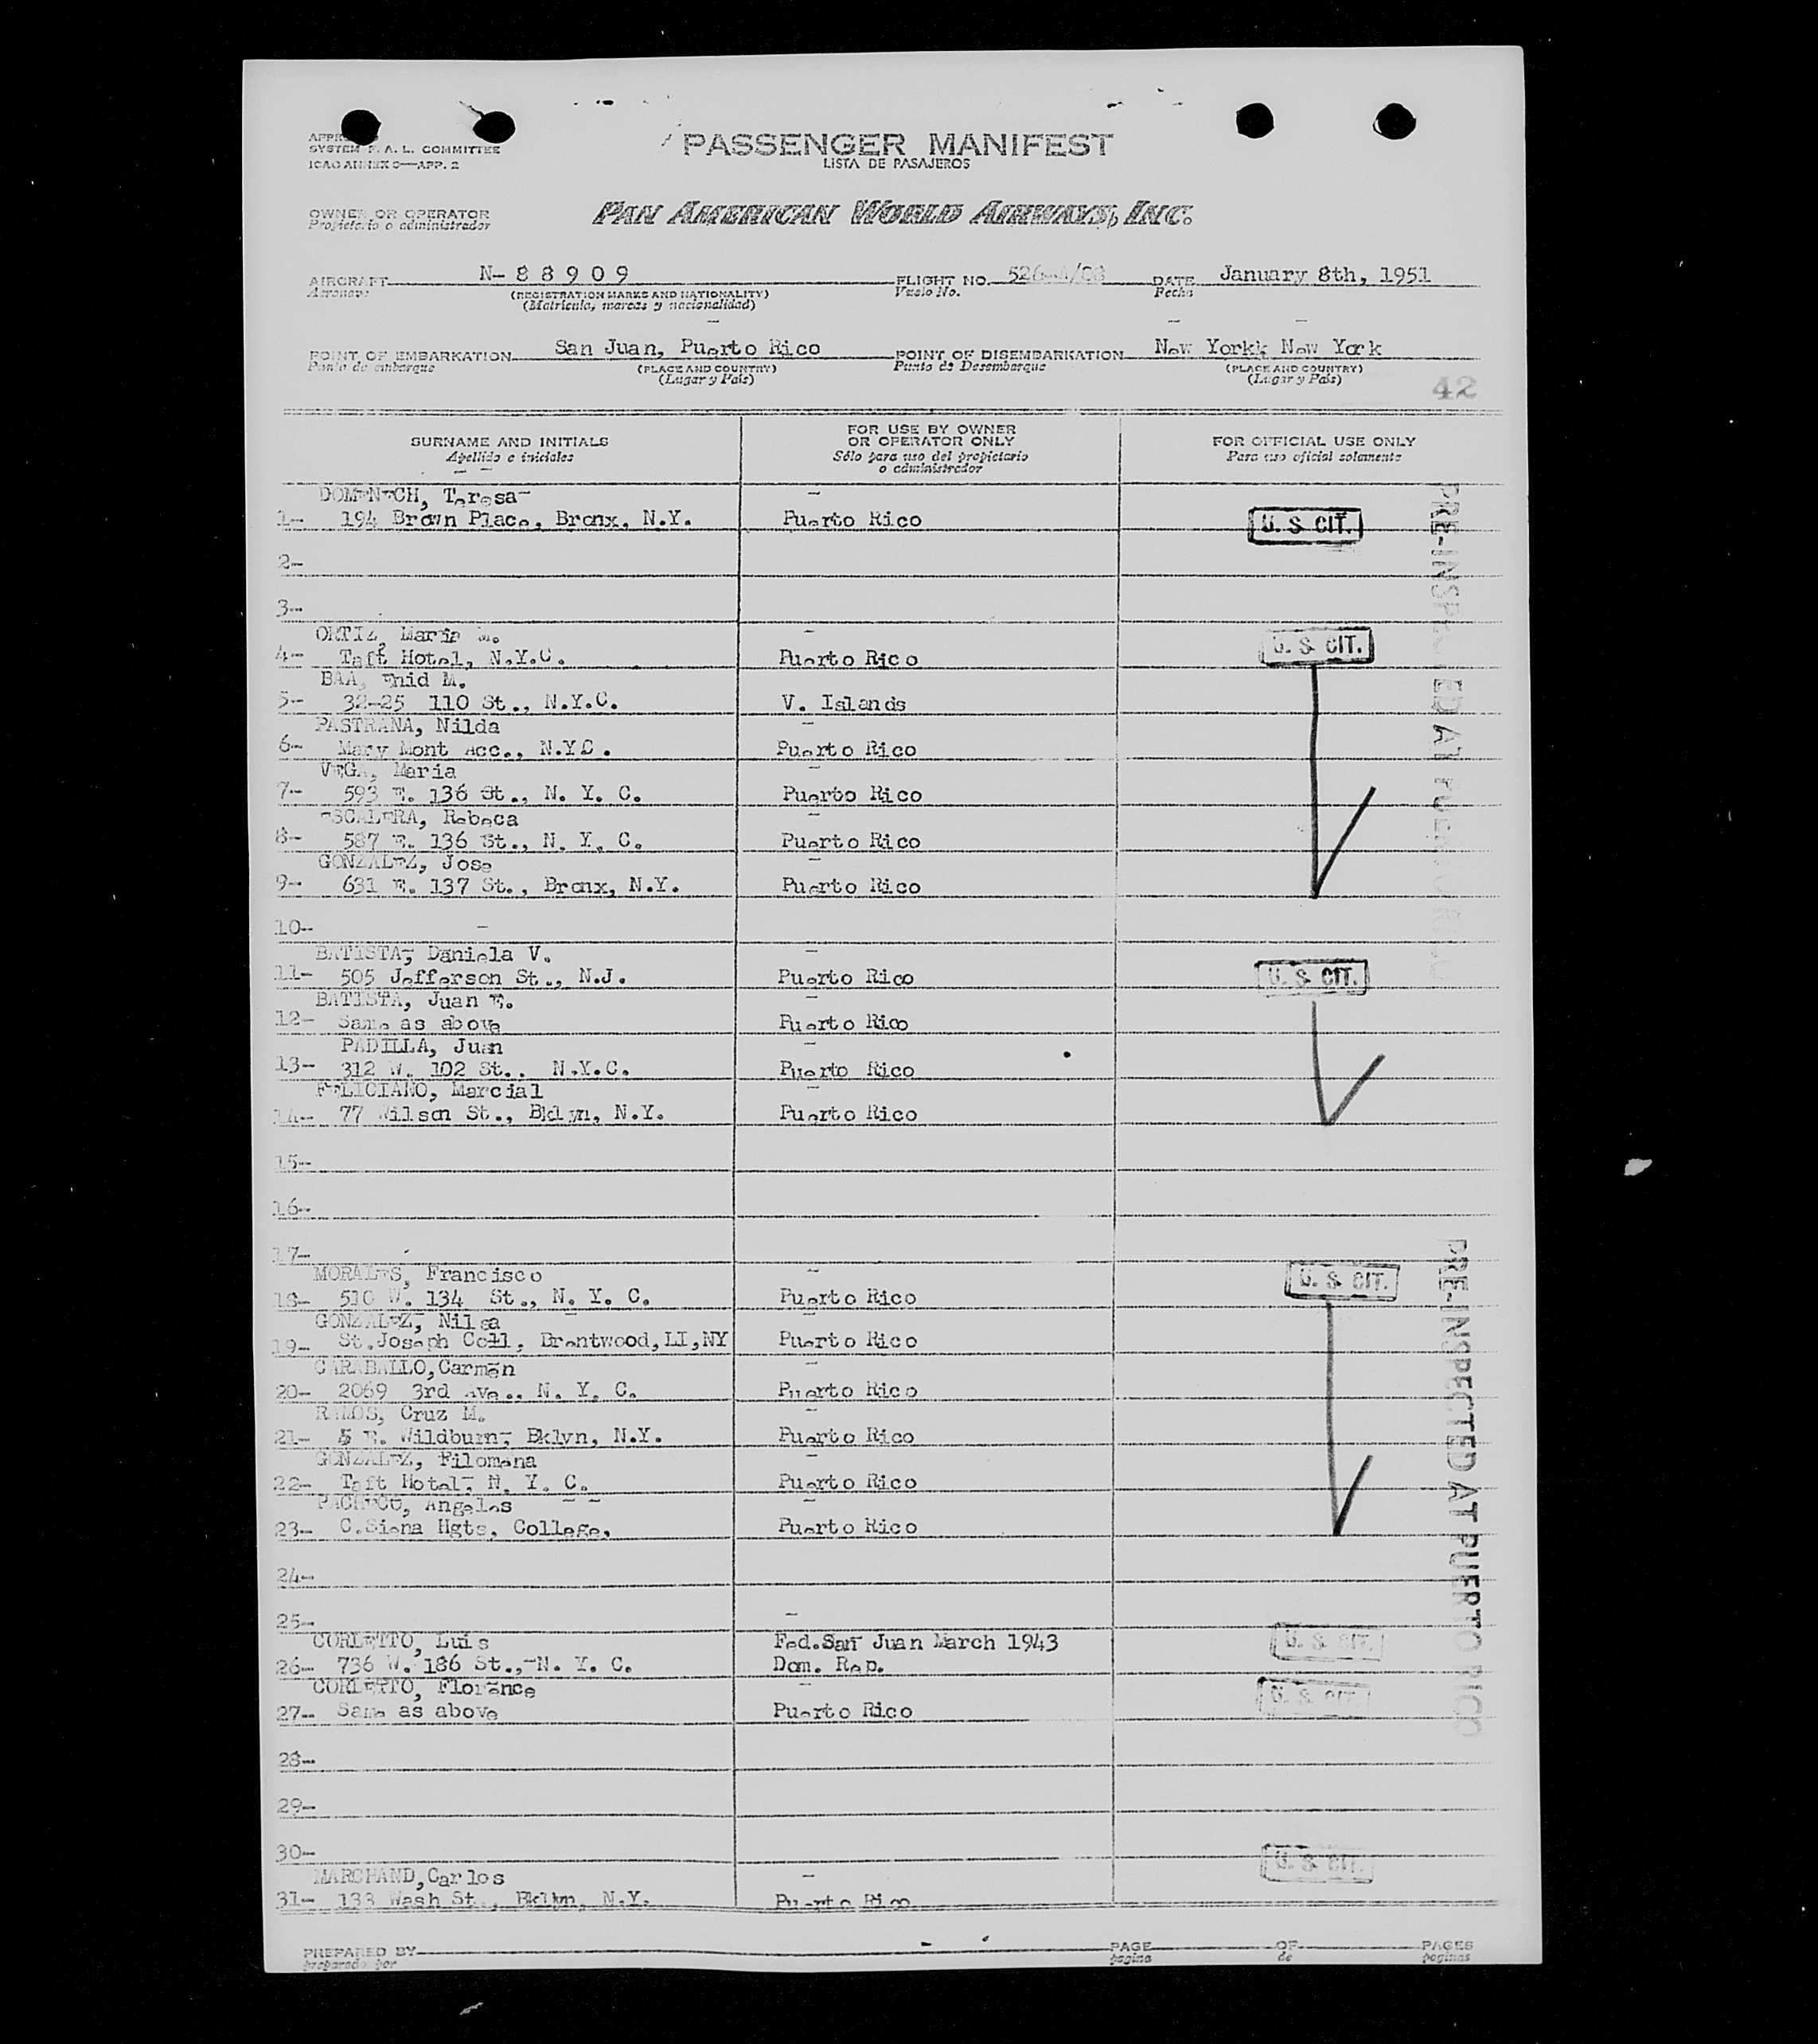 SYSTEM F. A. L. COMMITTEE
ICAO ANNEX 9—APP. 2
PASSENGER MANIFEST
LISTA DE PASAJEROS
OWNER OR OPERATOR
Propietario o administrador
PAN AMERICAN WORLD AIRWAYS, INC.
AIRCRAFT N- 8 8 9 0 9 FLIGHT NO. DATE January 8th, 1951
Aeronave (REGISTRATION MARKS AND NATIONALITY) Vuelo No. Fecha
(Matrícula, marcas y nacionalidad)
POINT OF EMBARKATION San Juan, Puerto Rico POINT OF DISEMBARKATION New Yorkk New York
Punto de embarque (PLACE AND COUNTRY) Punto de Desembarque (PLACE AND COUNTRY)
(Lugar y País) (Lugar y País)
42
SURNAME AND INITIALS
Apellido e iniciales
FOR USE BY OWNER
OR OPERATOR ONLY
Sólo para uso del propietario
o administrador
FOR OFFICIAL USE ONLY
Para uso oficial solamente
DOMENECH, Teresa
1- 194 Brown Place, Bronx, N.Y. Puerto Rico U. S. CIT.
2-
3-
ORTIZ, Maria M.
4- Taft Hotel, N.Y.C. Puerto Rico U. S. CIT.
BAA, Enid M.
5- 32-25 110 St., N.Y.C. V. Islands
PASTRANA, Nilda
6- Mary Mont Acc., N.Y.C. Puerto Rico
VEGA, Maria
7- 593 E. 136 St., N. Y. C. Puerto Rico
ESCALERA, Rebeca
8- 587 E. 136 St., N. Y. C. Puerto Rico
GONZALEZ, Jose
9- 631 E. 137 St., Bronx, N.Y. Puerto Rico
10-
BATISTA, Daniela V.
11- 505 Jefferson St., N.J. Puerto Rico U. S. CIT.
BATISTA, Juan E.
12- Same as above Puerto Rico
PADILLA, Juan
13- 312 W. 102 St.. N.Y.C. Puerto Rico
FELICIANO, Marcial
14- 77 Wilson St., Bklyn, N.Y. Puerto Rico
15-
16-
17-
MORALES, Francisco U. S. CIT.
18- 510 W. 134 St., N. Y. C. Puerto Rico
GONZALEZ, Nilsa
19- St.Joseph Coll, Brentwood,LI,NY Puerto Rico
CARABALLO,Carmen
20- 2069 3rd Ave., N. Y. C. Puerto Rico
RAMOS, Cruz M.
21- 5 E. Wildburn, Bklyn, N.Y. Puerto Rico
GONZALEZ, Filomena
22- Taft Hotel, N. Y. C. Puerto Rico
PACHECO, Angeles
23- C.Siena Hgts. College, Puerto Rico
24-
25-
CORLETTO, Luis Fed.San Juan March 1943 U. S. CIT.
26- 736 W. 186 St., N. Y. C. Dom. Rep.
CORLETTO, Florence U. S. CIT.
27- Same as above Puerto Rico
28-
29-
30-
MARCHAND,Carlos U. S. CIT.
31- 133 Wash St., Bklyn, N.Y. Puerto Rico
PRE-INSPECTED AT PUERTO RICO
PRE-INSPECTED AT PUERTO RICO
PREPARED BY PAGE OF PAGES
preparado por pagina de paginas